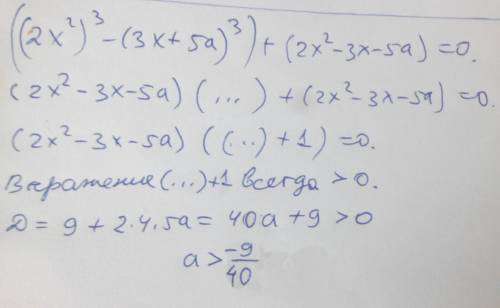 ((2x²)³ - (3x + 5a)³) + (2x² - 3x - 5a) = 0.
(2x² - 3x - 5a) (...) + (2x² - 3x - 5a) = 0.
(2x² - 3x - 5a) ((...) + 1) = 0.
Выражение (...) + 1 всегда > 0.
D = 9 + 2·4·5a = 40a + 9 > 0
a > -9/40